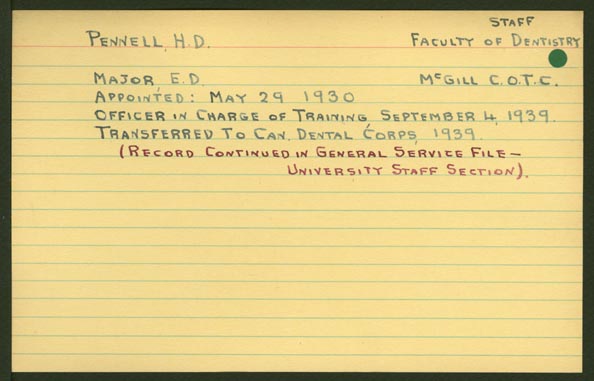 STAFF
PENNELL, H.D. FACULTY OF DENTISTRY
MAJOR E.D. McGILL C.O.T.C.
APPOINTED: MAY 29 1930
OFFICER IN CHARGE OF TRAINING SEPTEMBER 4, 1939.
TRANSFERRED TO CAN. DENTAL CORPS, 1939.
(RECORD CONTINUED IN GENERAL SERVICE FILE —
UNIVERSITY STAFF SECTION).